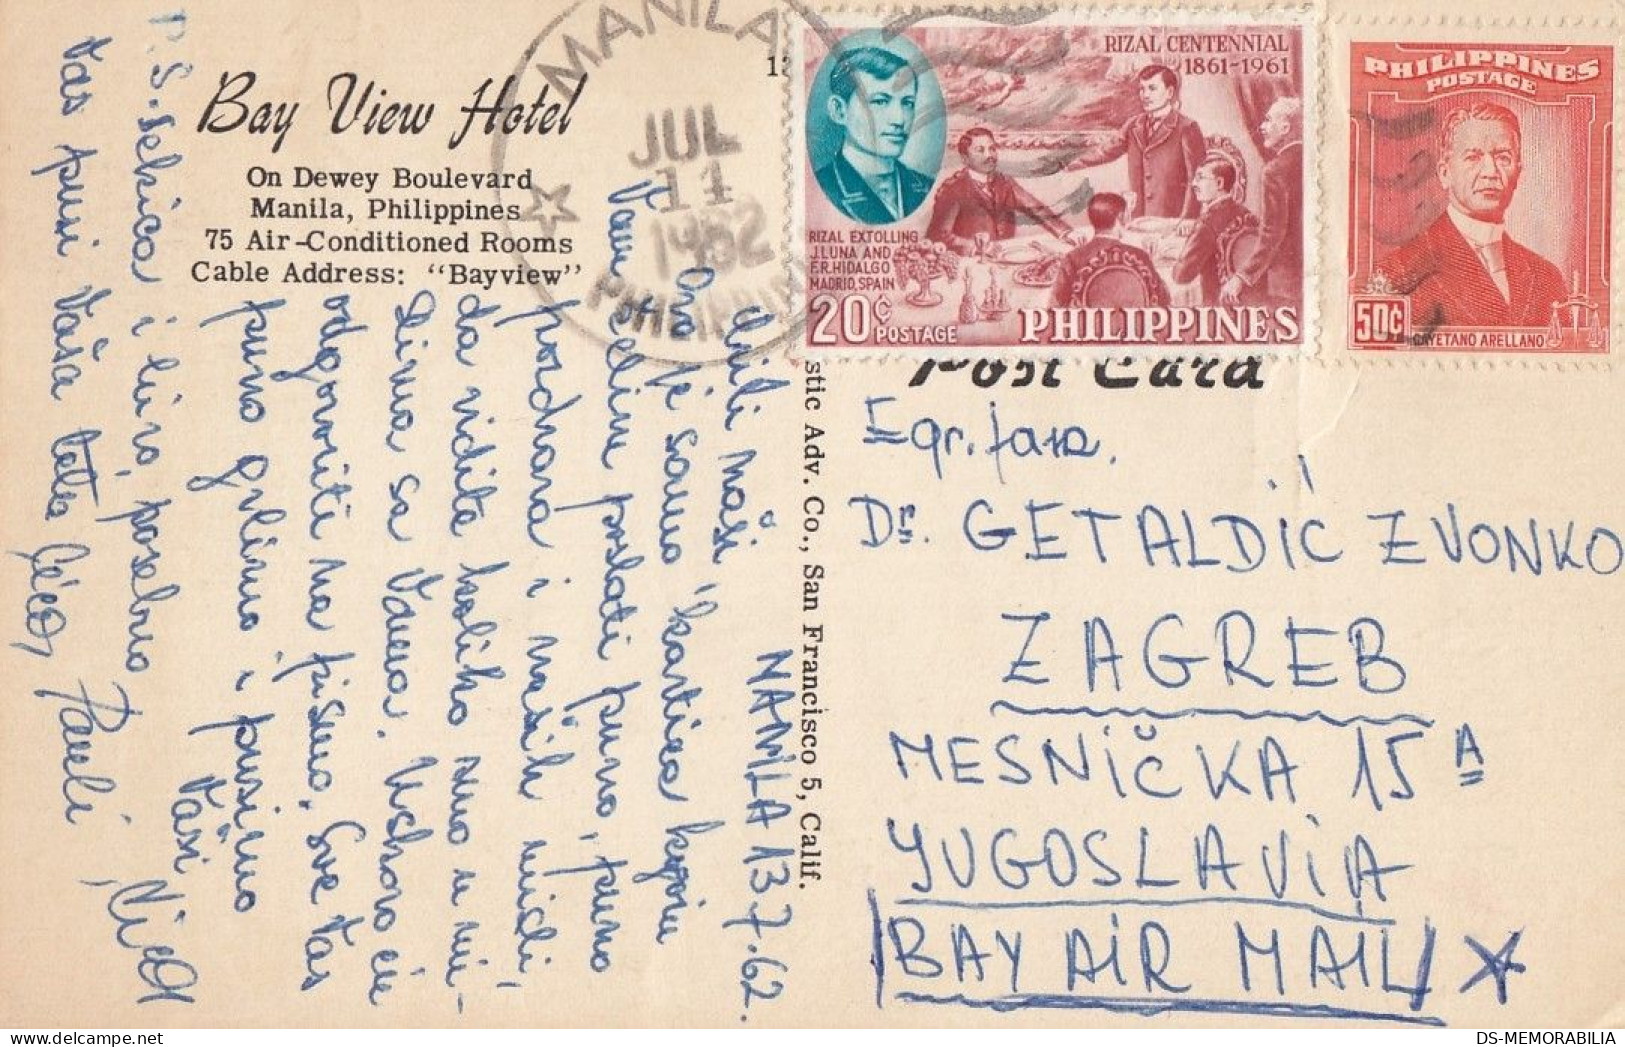 Bay View Hotel
On Dewey Boulevard
Manila, Philippines
75 Air-Conditioned Rooms
Cable Address: "Bayview"
MANILA
JUL
11
1962
PHILIPPIN
RIZAL CENTENNIAL
1861-1961
RIZAL EXTOLLING
J.LUNA AND
F.R.HIDALGO
MADRID, SPAIN
20¢ POSTAGE
PHILIPPINES
PHILIPPINES
POSTAGE
50¢
CAYETANO ARELLANO
Post Card
stic Adv. Co., San Francisco 5, Calif.
MANILA 13.7.62.
Mili naši
Ovo je samo kartica kojom
Vam želim poslati puno, puno
pozdrava i naših misli,
da vidite koliko smo u mi-
slima sa Vama. Uskoro ću
odgovoriti na pismo. Sve Vas
puno grlimo i pusimo
Vaši
P.S. Sekica i Miro, posebno
Vas pusi Vaša teta
Egr.
Dr. GETALDIĆ ZVONKO
ZAGREB
MESNIČKA 15A
YUGOSLAVIA
BAY AIR MAIL
DS-MEMORABILIA